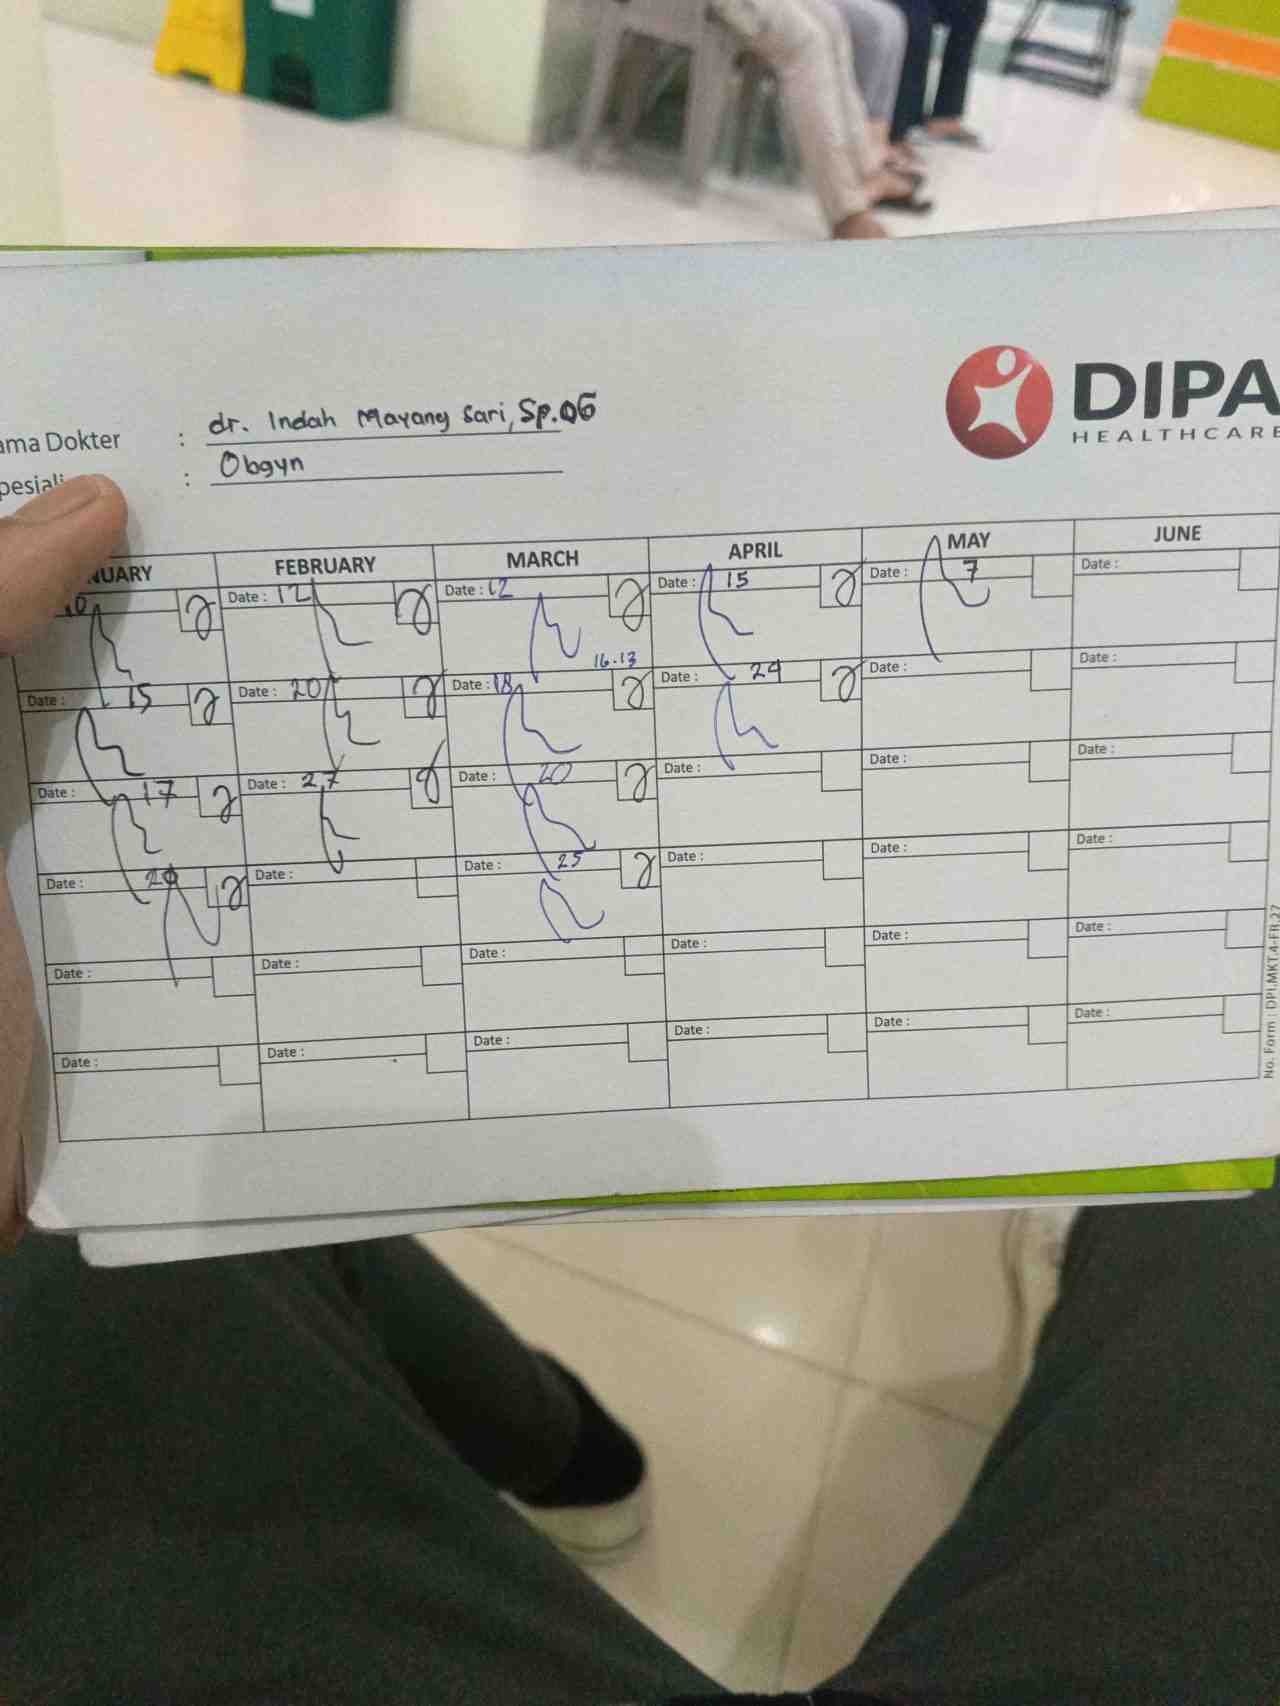 DIPA
HEALTHCARE
ama Dokter : dr. Indah Mayang Sari, Sp.OG
pesiali : Obgyn
NUARY FEBRUARY MARCH APRIL MAY JUNE
10 Date : 12 Date : 12 Date : 15 Date : 7 Date :
16.13
Date : 15 Date : 20 Date : 18 Date : 24 Date : Date :
Date : 17 Date : 27 Date : 20 Date : Date : Date :
Date : Date : Date : 25 Date : Date : Date :
Date : Date : Date : Date : Date : Date :
Date : Date : Date : Date : Date : Date :
No. Form : DPI.MKT.4-FR.27